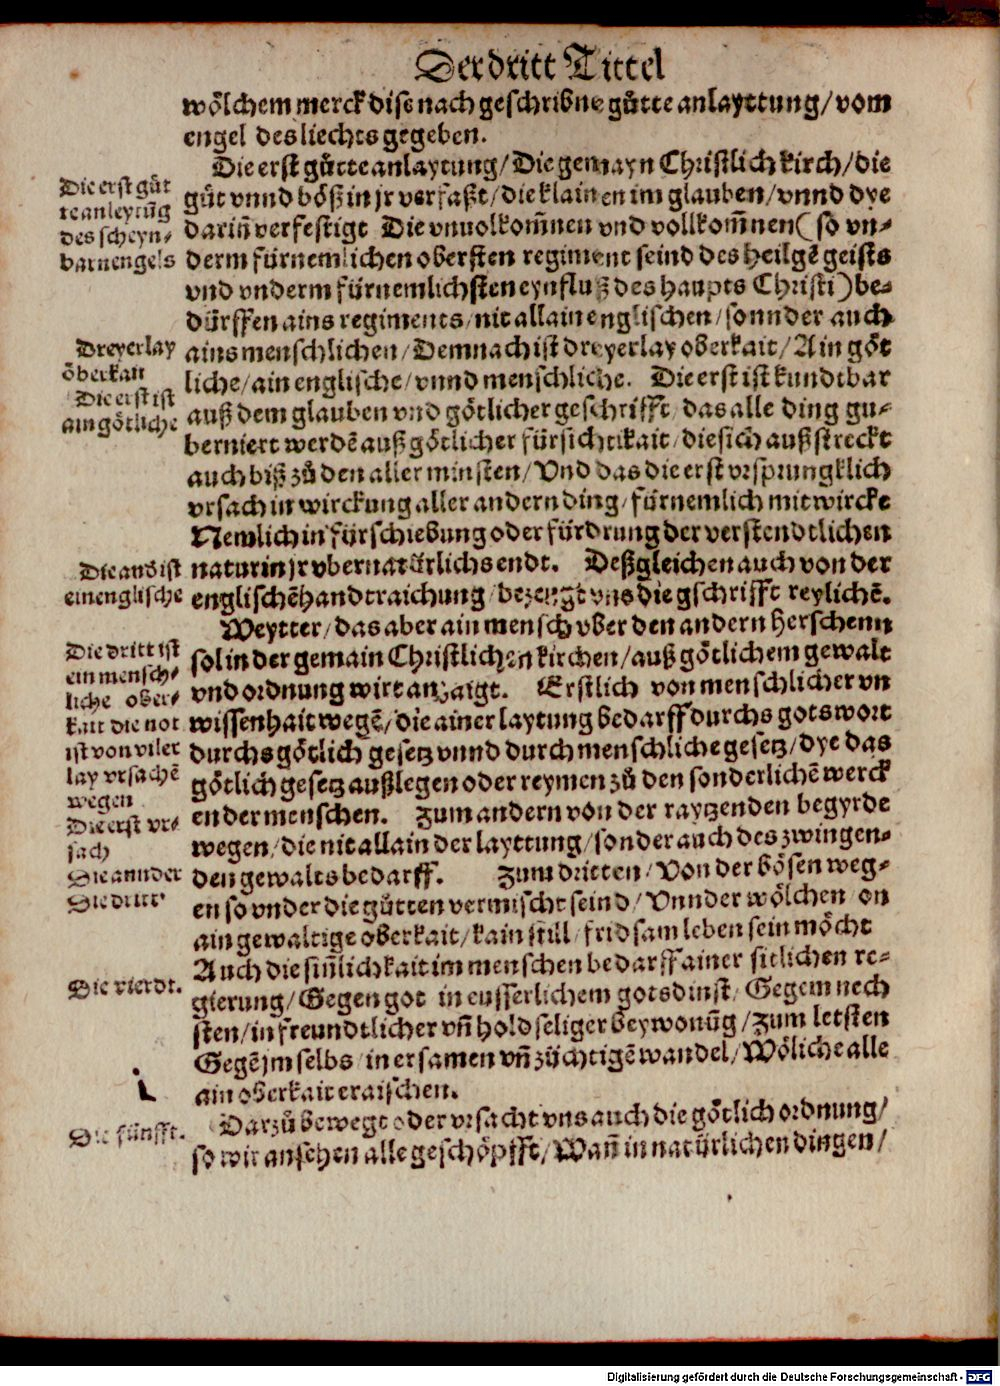 Der dritt Tittel
wölchem merck dise nach geschribne gůtte anlayttung/ vom
engel des liechts gegeben.
Die erst gůtte anlaytung/ Die gemayn Christlich kirch/ die
gůt vnnd bößin jr verfaßt/ die klainen im glauben/ vnnd dye
dariñ verfestigt Die vnuolkom̄nen vnd vollkom̄nen (so vn-
derm fürnemlichen obersten regiment seind des heilgē geists
vnd vnderm fürnemlichsten eynfluß des haupts Christi) be-
dürffen ains regiments/ nit allain englischen/ sonnder auch
ains menschlichen/ Demnach ist dreyerlay oberkait/ Ain göt
liche/ ain englische/ vnnd menschliche. Die erst ist kundtbar
auß dem glauben vnd götlicher geschrifft/ das alle ding gu-
berniert werdē auß götlicher fürsichtikait/ die sich außstreckt
auch biß zů den aller minsten/ Vnd das die erst vrsprungklich
vrsach in wirckung aller andern ding/ fürnemlich mitwircke
Nemlich in fürschiebung oder fürdrung der verstendtlichen
natur in jr vbernatürlichs endt. Deßgleichen auch von der
englischē handtraichung/ bezeugt vns die gschrifft reylichē.
Weytter/ das aber ain mensch vber den andern herschenn
sol in der gemain Christlichen kirchen/ auß götlichem gewalt
vnd ordnung wirt anzaigt. Erstlich von menschlicher vn
wissenhait wegē/ die ainer laytung bedarff durchs gots wort
durchs götlich gesetz vnnd durch menschliche gesetz/ dye das
götlich gesetz außlegen oder reymen zů den sonderlichē werck
en der menschen. Zum andern von der raytzenden begyrde
wegen/ die nit allain der layttung/ sonder auch des zwingen-
den gewalts bedarff. Zum dritten/ Von der bösen weg-
en so vnder die gůtten vermischt seind/ Vnnder wölchen on
ain gewaltige oberkait/ kain still/ fridsam leben sein möcht
Auch die siñlichkait im menschen bedarff ainer sitlichen re-
gierung/ Gegen got in eusserlichem gotsdinst/ Gegem nech
sten/ in freundtlicher vñ holdseliger beywonūg/ Zum letsten
Gegē jm selbs/ in ersamen vñ züchtigē wandel/ Wöliche alle
ain oberkait eraischen.
Darzů bewegt oder vrsacht vns auch die götlich ordnung/
so wir ansehen alle geschöpfft/ Wañ in natürlichen dingen/
Die erst gůt
te anleytūg
des scheyn-
barn engels
Dreyerlay
öberkait
Die erst ist
ain götliche
Die and ist
ein englische
Die dritt ist
ein mensch-
liche ober-
kait die not
ist von viler
lay vrsachē
wegen
Die erst vr-
sach
Die annder
Die dritt
Die vierdt.
Die fünfft.
Digitalisierung gefördert durch die Deutsche Forschungsgemeinschaft - DFG